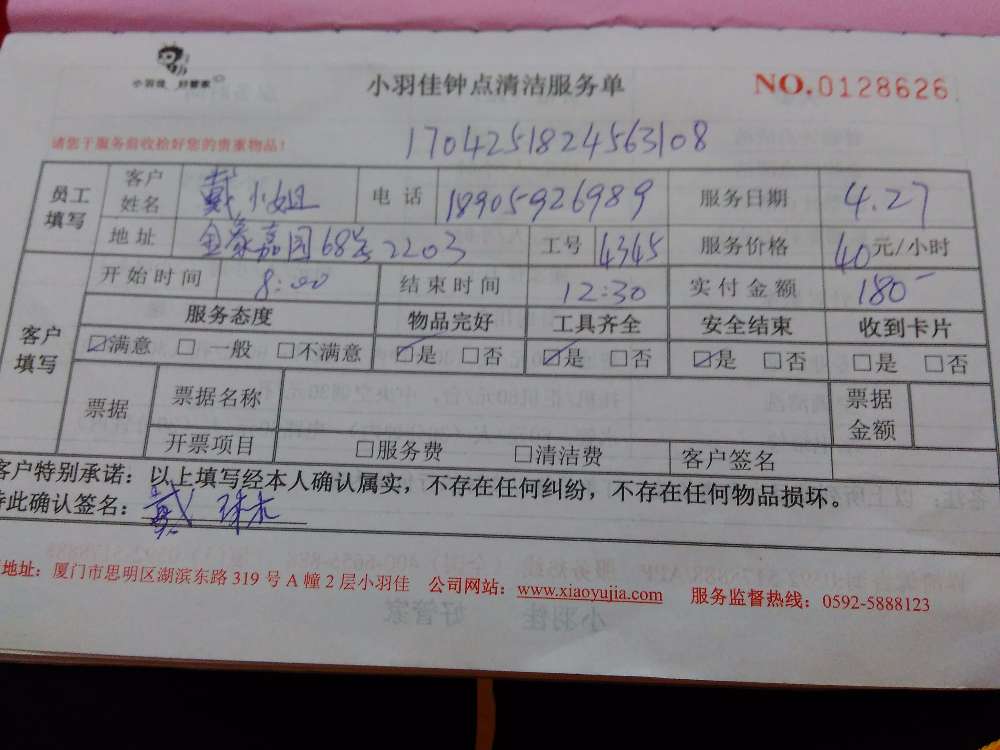 小羽佳 好管家
小羽佳钟点清洁服务单
NO.0128626
请您于服务前收拾好您的贵重物品!
1704251824563108
员工填写 客户姓名 戴小姐 电话 18905926989 服务日期 4.27
地址 金豪嘉园68号2203 工号 4345 服务价格 40元/小时
客户填写 开始时间 8:00 结束时间 12:30 实付金额 180
服务态度 物品完好 工具齐全 安全结束 收到卡片
☑满意 □一般 □不满意 ☑是 □否 ☑是 □否 ☑是 □否 □是 □否
票据 票据名称 票据金额
开票项目 □服务费 □清洁费 客户签名
客户特别承诺：以上填写经本人确认属实，不存在任何纠纷，不存在任何物品损坏。
特此确认签名：戴
地址：厦门市思明区湖滨东路 319 号 A 幢 2 层小羽佳 公司网站：www.xiaoyujia.com 服务监督热线：0592-5888123